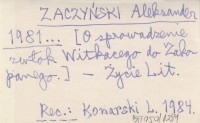 ZACZYŃSKI Aleksander
1981... [O sprowadzenie
zwłok Witkacego do Zako
panego.] – Życie Lit.
Rec.: Konarski L. 1984.